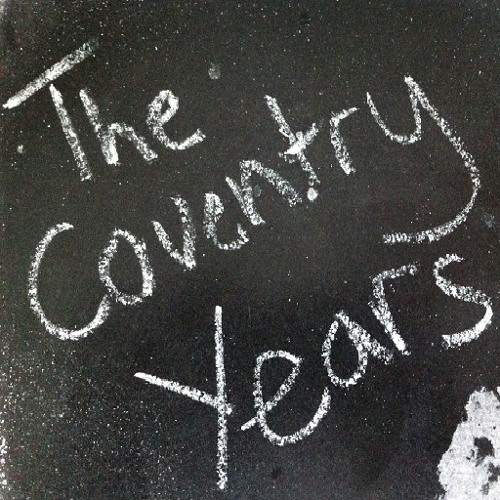 The
Coventry
Years